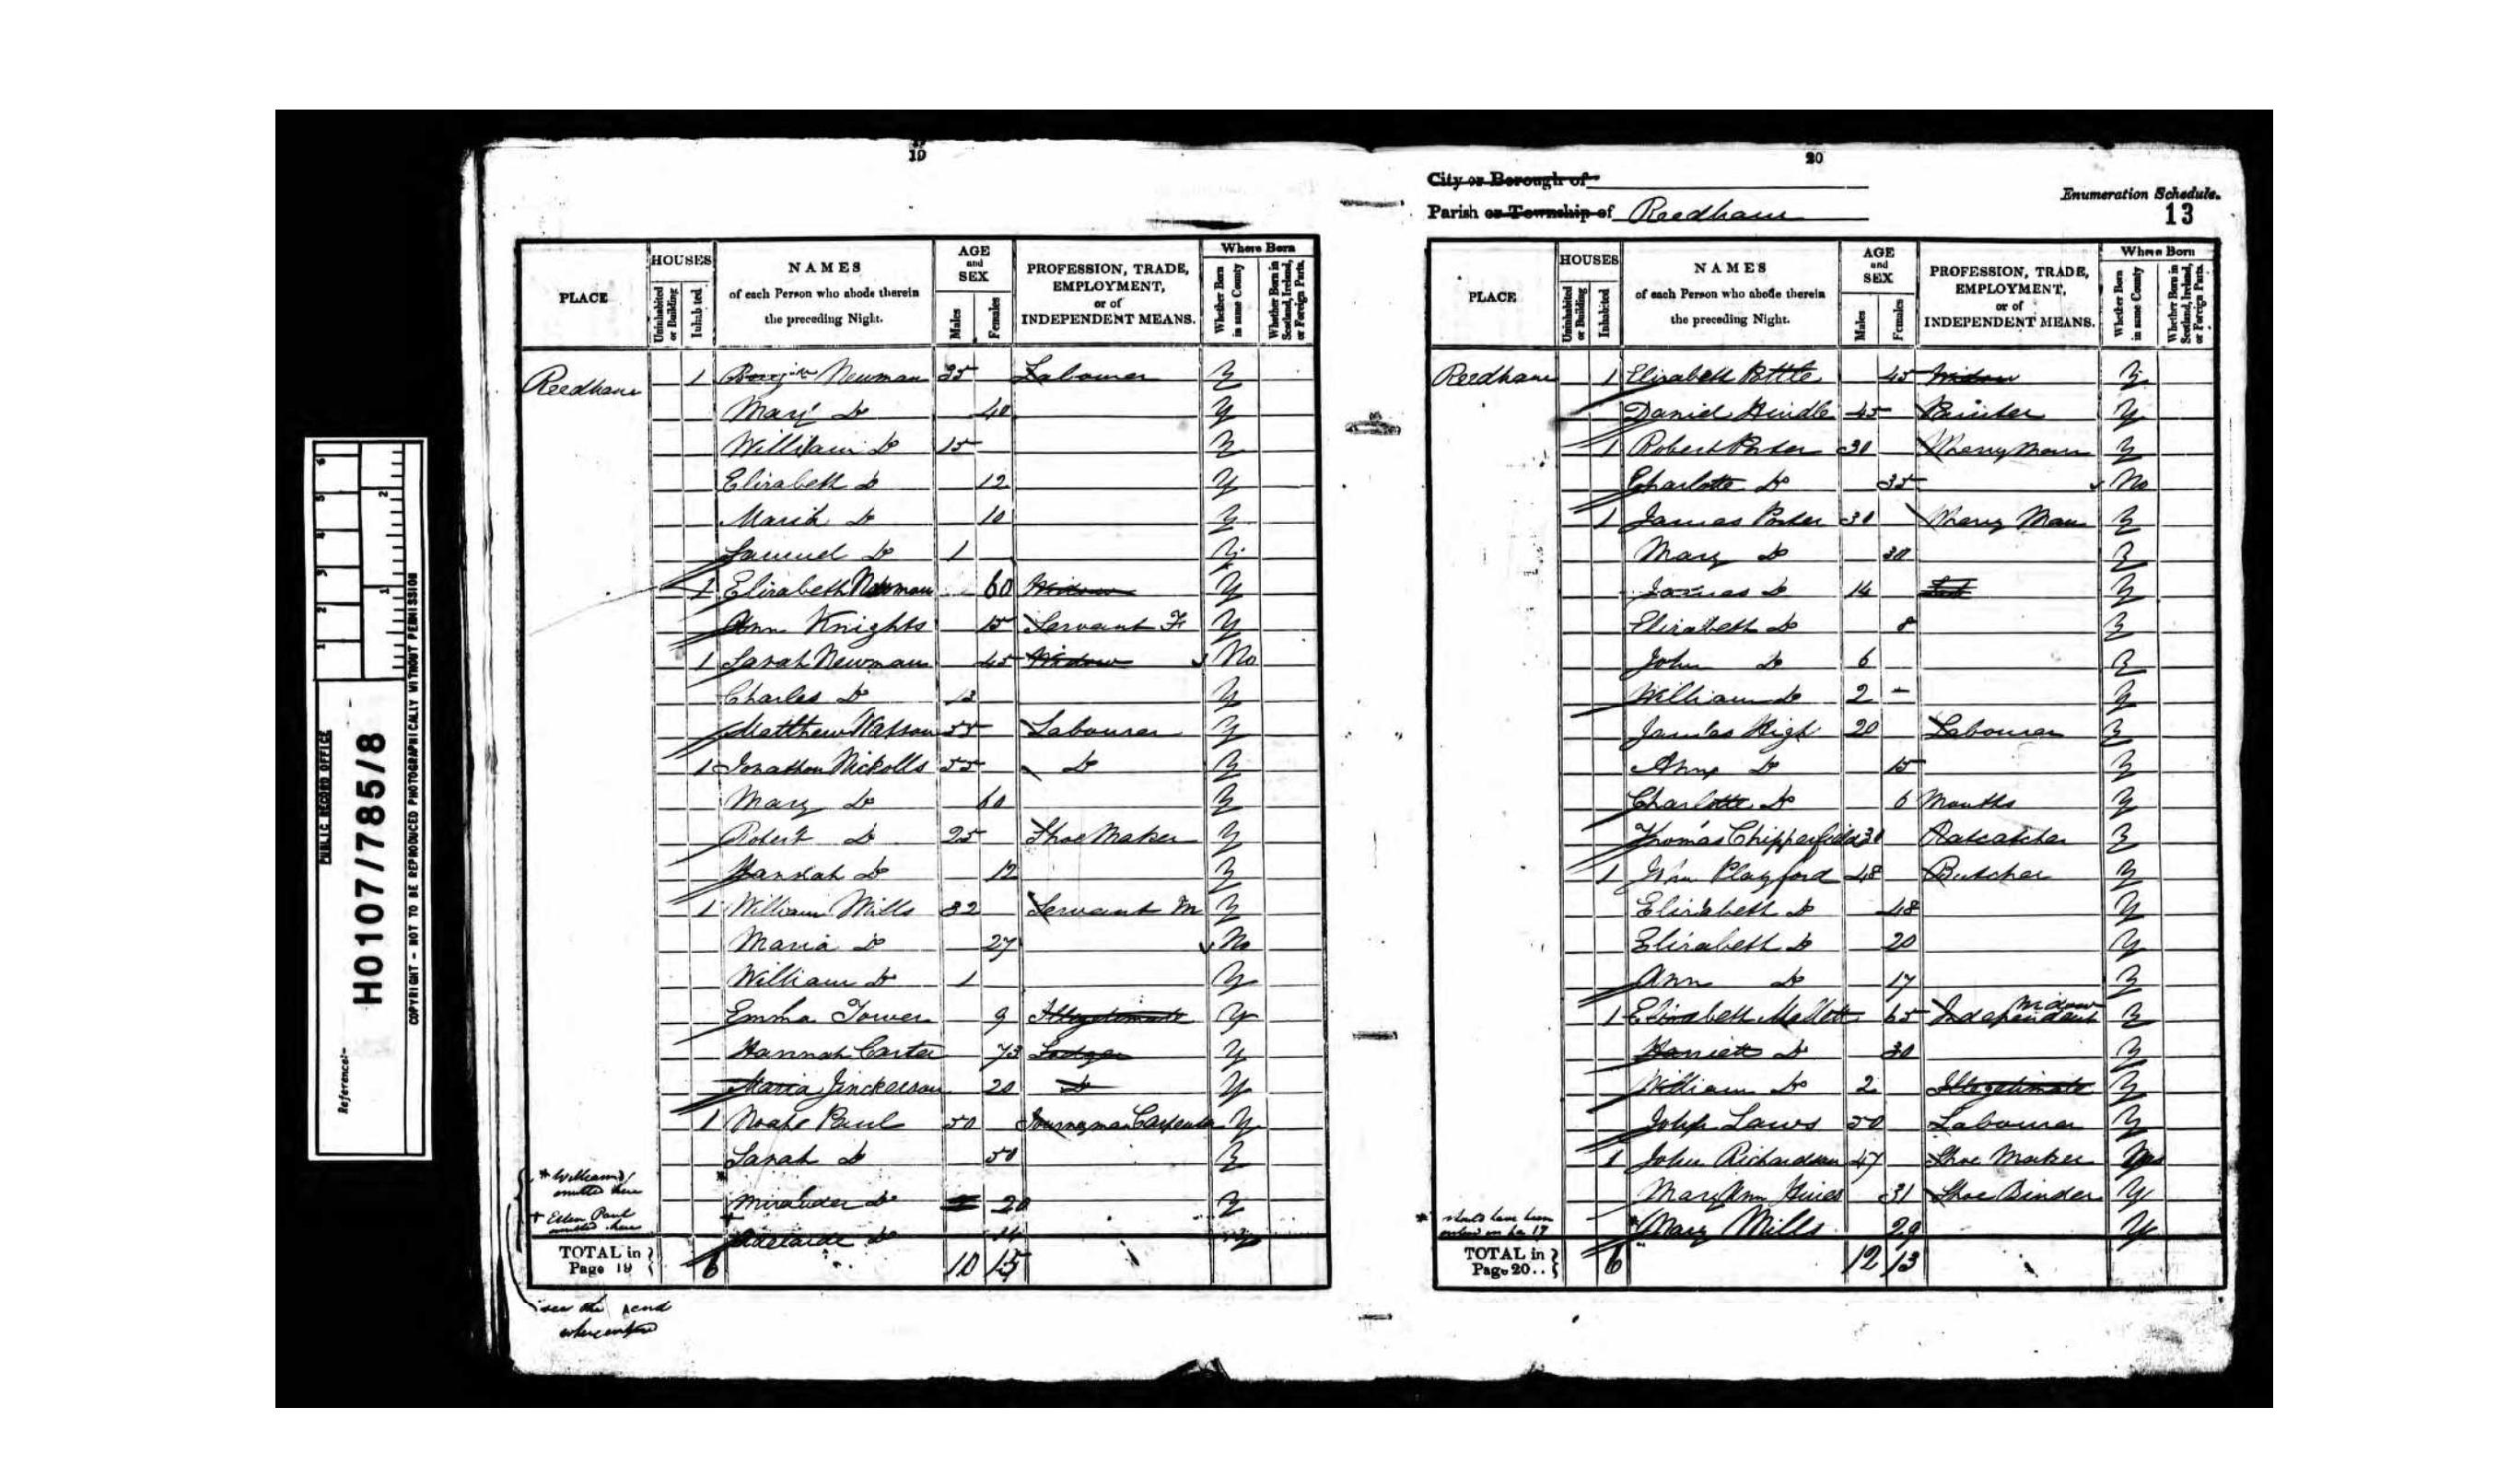 PUBLIC RECORD OFFICE
Reference:-
HO107/785/8
COPYRIGHT - NOT TO BE REPRODUCED PHOTOGRAPHICALLY WITHOUT PERMISSION
19
PLACE
HOUSES
Uninhabited or Building
Inhabited
NAMES
of each Person who abode therein
the preceding Night.
AGE
and
SEX
Males
Females
PROFESSION, TRADE,
EMPLOYMENT,
or of
INDEPENDENT MEANS.
Where Born
Whether Born in same County
Whether Born in Scotland, Ireland, or Foreign Parts.
Reedham 1 Newman 35 Labourer Y
Mary Do 40 Y
William Do 15 Y
Elizabeth Do 12 Y
Mariah Do 10 Y
Samuel Do 1 Y
1 Elizabeth Newman 60 Widow Y
Ann Knights 15 Servant F Y
1 Sarah Newman 45 Widow No
Charles Do 12 Y
Matthew Watson 55 Labourer Y
1 Jonathon Nickolls 55 Do Y
Mary Do 60 Y
Robert Do 25 Shoe Maker Y
Hannah Do 12 Y
1 William Mills 32 Servant M Y
Maria Do 27 No
William Do 1 Y
Emma Tower 9 Illegitimate Y
Hannah Carter 73 Lodger Y
Maria Jinckerson 20 Do Y
1 Noahe Paul 50 Journeyman Carpenter Y
Sarah Do 50 Y
* William omitted here
* Mirander Do 20 Y
+ Ellen Paul omitted here
+ Adelaide Do 14 Y
TOTAL in Page 19 6 10 15
see the
where
20
City or Borough of
Parish or Township of Reedham
Enumeration Schedule.
13
PLACE
HOUSES
Uninhabited or Building
Inhabited
NAMES
of each Person who abode therein
the preceding Night.
AGE
and
SEX
Males
Females
PROFESSION, TRADE,
EMPLOYMENT,
or of
INDEPENDENT MEANS.
Where Born
Whether Born in same County
Whether Born in Scotland, Ireland, or Foreign Parts.
Reedham 1 Elizabeth Pottle 45 Widow Y
Daniel Hindle 45 Y
1 Robert Porter 30 Wherry Man Y
Charlotte Do 35 No
1 James Porter 30 Wherry Man Y
Mary Do 30 Y
James Do 14 Y
Elizabeth Do 8 Y
John Do 6 Y
William Do 2 - Y
James High 20 Labourer Y
Ann Do 15 Y
Charlotte Do 6 Months Y
Thomas Chipperfield 30 Ratcatcher Y
1 John Playford 48 Butcher Y
Elizabeth Do 48 Y
Elizabeth Do 20 Y
Ann Do 17 Y
1 Elizabeth Mellott 65 Independant Widow Y
Harriett Do 30 Y
William Do 2 Illegitimate Y
John Laws 50 Labourer Y
1 John Richardson 47 Shoe Maker
Mary Ann Hines 31 Shoe Binder Y
* should have been
* Mary Mills 29 Y
TOTAL in Page 20.. 6 12 13